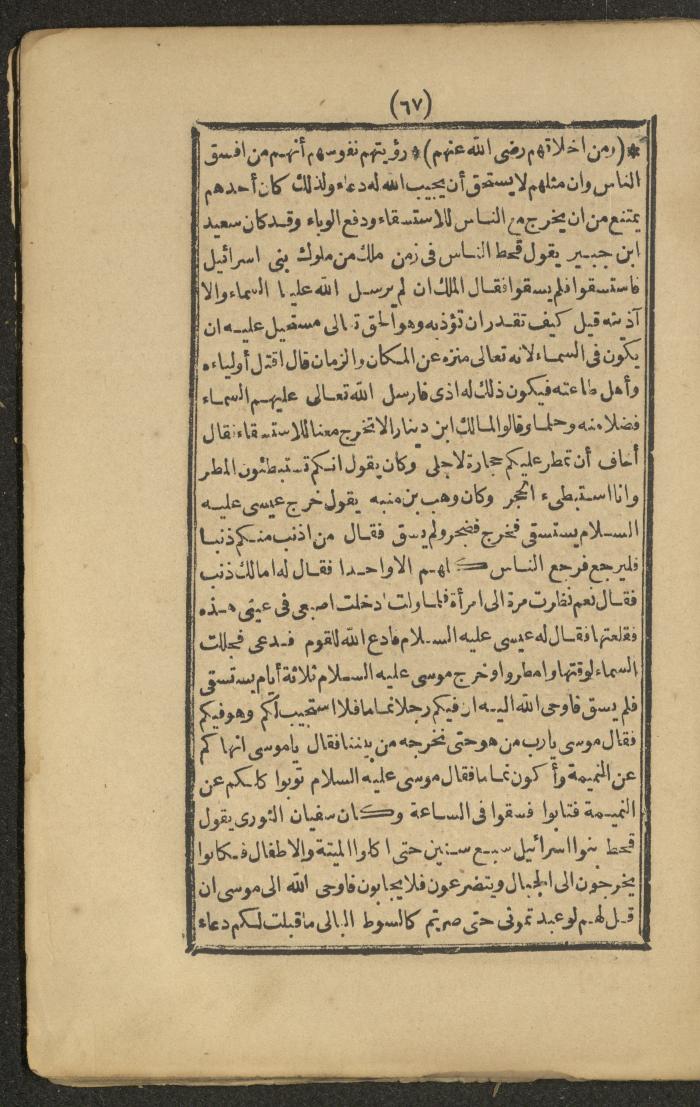 (٦٧)
*(ومن اخلاقهم رضى الله عنهم)* رؤيتهم نفوسهم أنهم من افسق
الناس وان مثلهم لا يستحق أن يجيب الله له دعاء ولذلك كان أحدهم
يمتنع من ان يخرج مع الناس للاستسقاء ودفع الوباء وقد كان سعيد
ابن جبير يقول قحط الناس فى زمن ملك من ملوك بنى اسرائيل
فاستسقوا فلم يسقوا فقال الملك ان لم يرسل الله علينا السماء والا
آذيته قيل كيف تقدر ان تؤذيه وهو الحق تعالى مستحيل عليه ان
يكون فى السماء لانه تعالى منزه عن المكان والزمان قال اقتل أولياءه
وأهل طاعته فيكون ذلك له اذى فارسل الله تعالى عليهم السماء
فضلا منه وحلما وقالوا لمالك ابن دينار الا تخرج معنا للاستسقاء فقال
أخاف أن تمطر عليكم حجارة لاجلى وكان يقول انكم تستبطئون المطر
وانا استبطىء الحجر وكان وهب بن منبه يقول خرج عيسى عليه
السلام يستسقى فخرج فضجر ولم يسق فقال من اذنب منكم ذنبا
فليرجع فرجع الناس كلهم الا واحدا فقال له امالك ذنب
فقال نعم نظرت مرة الى امرأة فلما ولت ادخلت اصبعى فى عينى هذه
فقلعتها فقال له عيسى عليه السلام فادع الله للقوم فدعى فجللت
السماء لوقتها وامطروا وخرج موسى عليه السلام ثلاثة أيام يستسقى
فلم يسق فاوحى الله اليه ان فيكم رجلا نماما فلا استجيب لكم وهو فيكم
فقال موسى يارب من هو حتى نخرجه من بيننا فقال ياموسى انهاكم
عن النميمة وأكون نماما فقال موسى عليه السلام توبوا كلكم عن
النميمة فتابوا فسقوا فى الساعة وكان سفيان الثورى يقول
قحط بنوا اسرائيل سبع سنين حتى اكلوا الميتة والاطفال فكانوا
يخرجون الى الجبال ويتضرعون فلا يجابون فاوحى الله الى موسى ان
قل لهم لو عبدتمونى حتى صرتم كالسوط البالى ما قبلت لكم دعاء